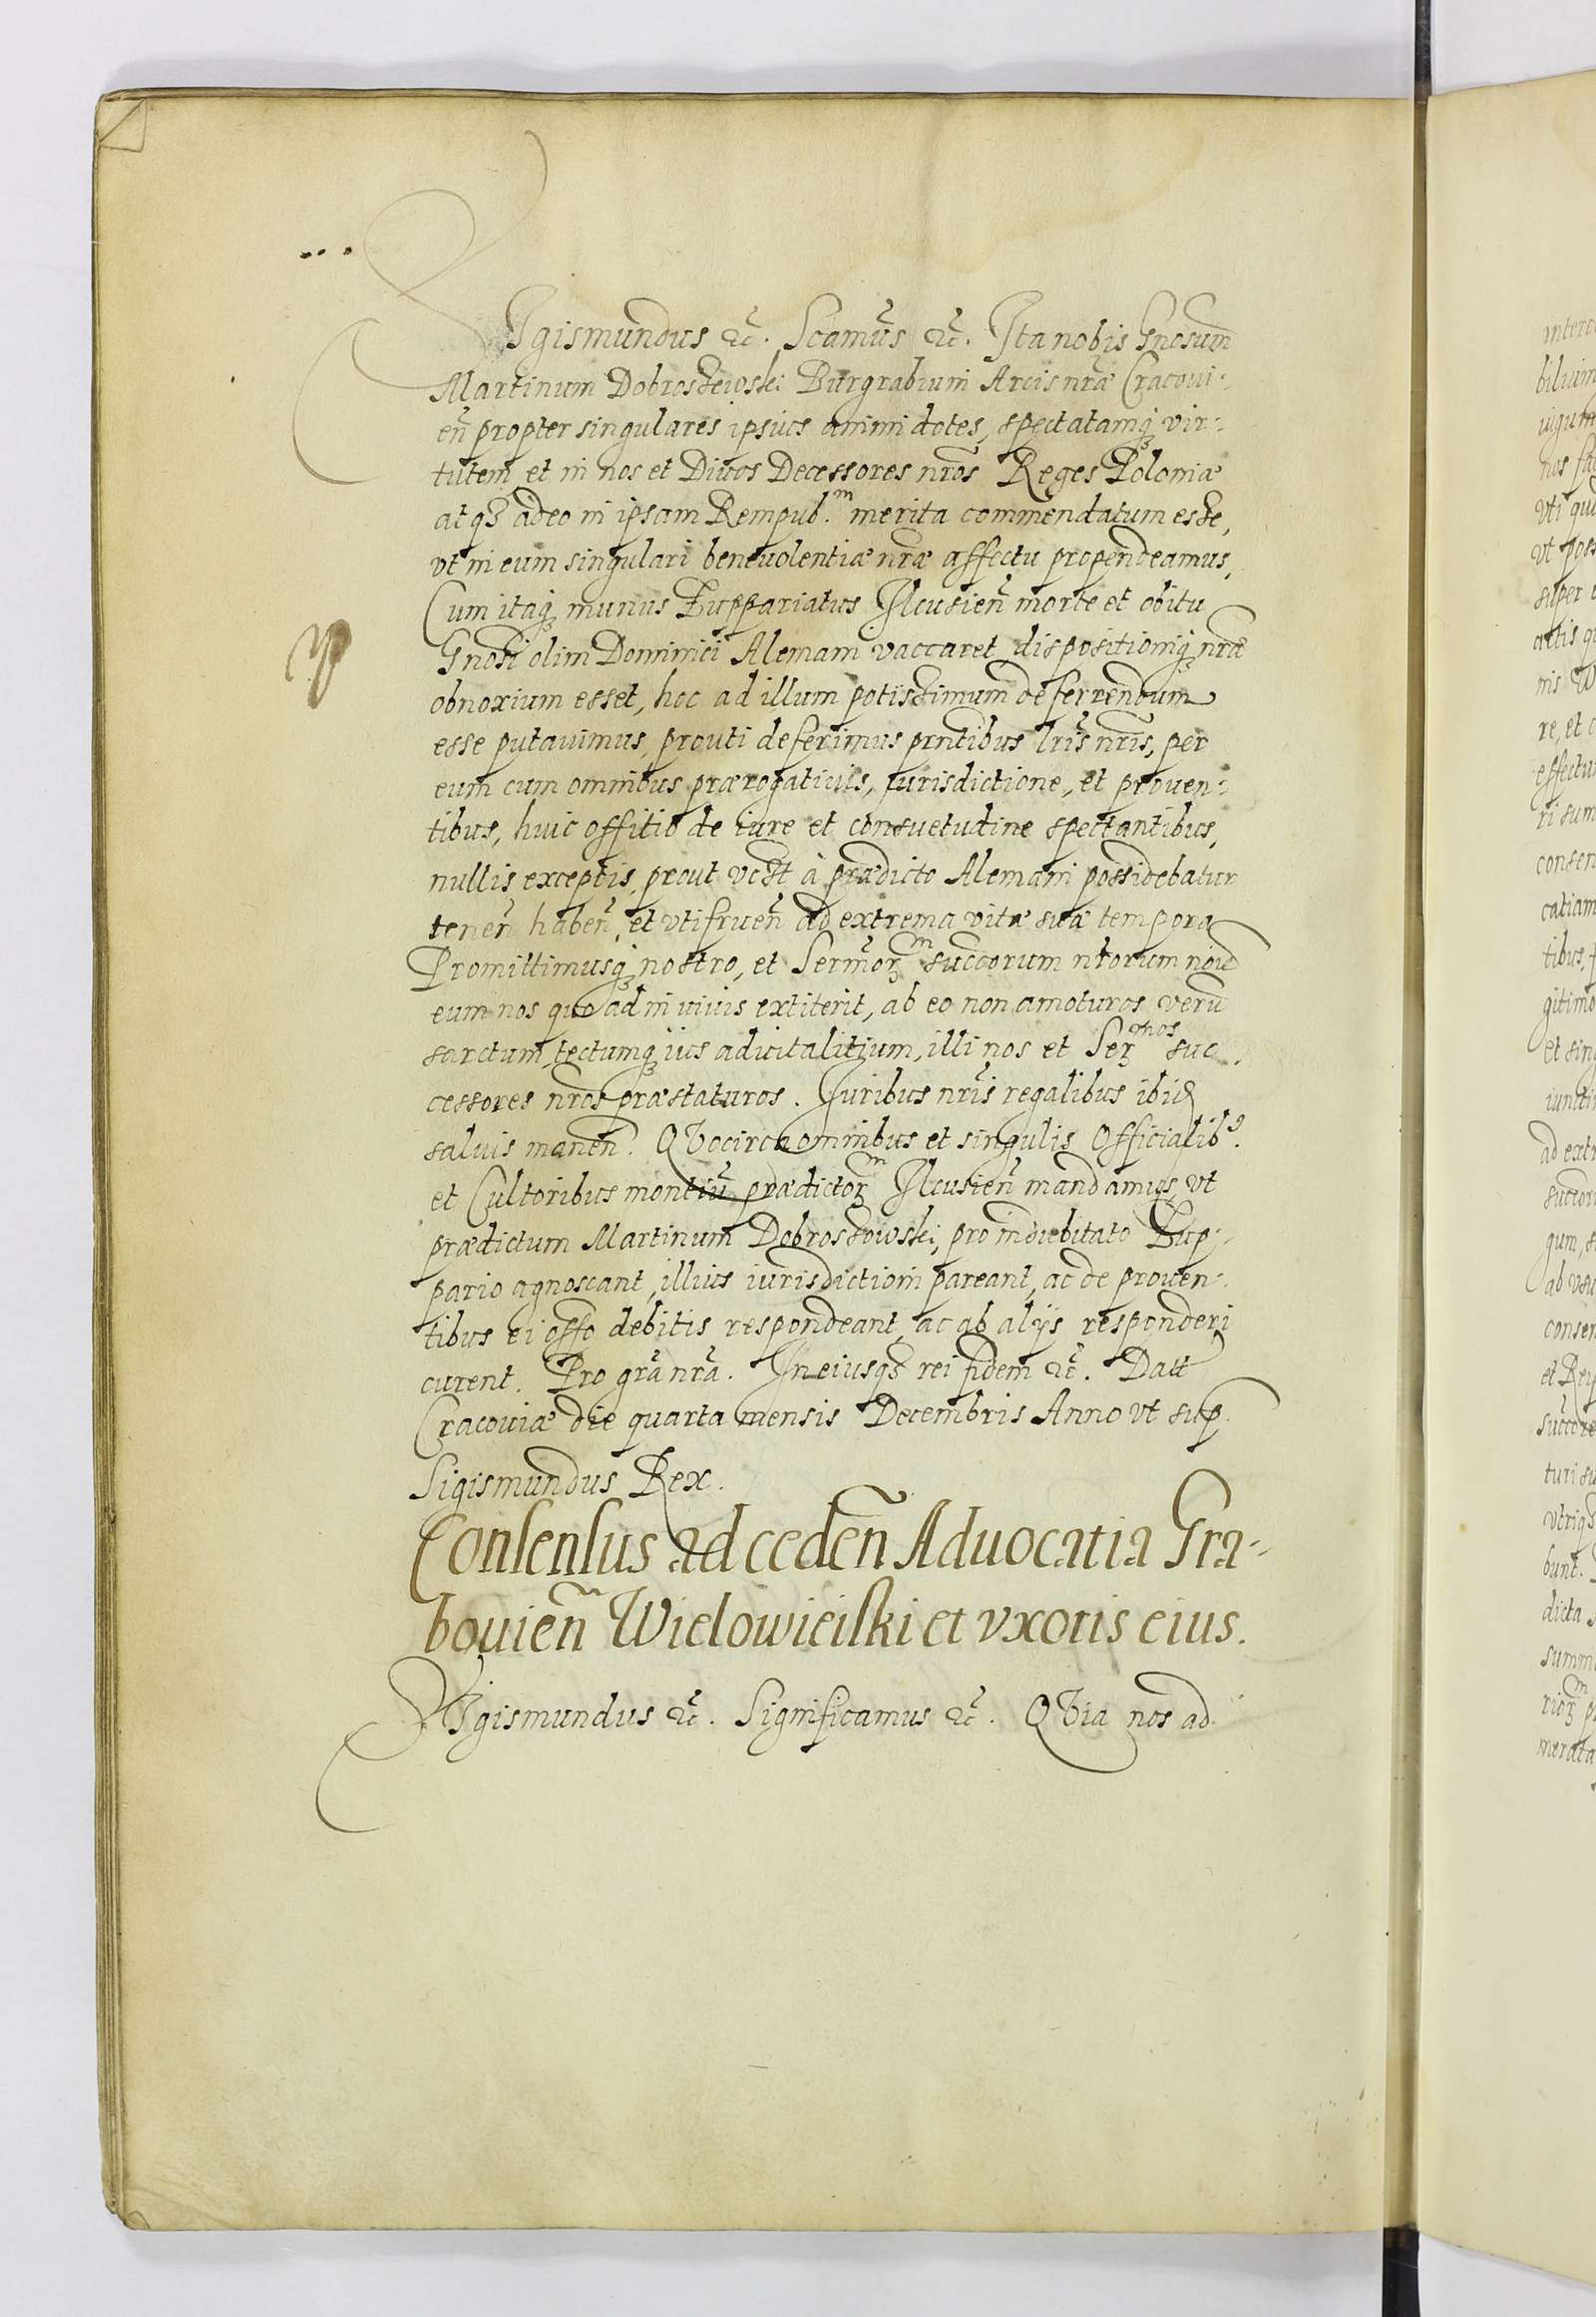 Sigismundus etc. Scamus etc. Ita nobis Gnosum
Martinum Dobrossewski Burgrabium Arcis nrae Cracoui:,
eñ propter singulares ipsius animi dotes, spectatamq; vir:,
tutem et in nos et Diuos Decessores nros Reges Poloniæ
atq; adeo in ipsam Rempub.m merita commendatum esse,
vt in eum singulari beneuolentiæ nræ affectu propendeamus,
Cum itaq; munus Zuppariatus Ilcusieñ morte et obitu
Gnosi olim Dominici Alemani vaccaret dispositioniq; nræ
obnoxium esset, hoc ad illum potissimum deferrendum
esse putauimus, prouti deferimus prntibus lris nris, per
eum cum omnibus prærogatiuis, iurisdictione, et prouen:,
tibus, huic offitio de iure et consuetudine spectantibus,
nullis exceptis, prout vest à prædicto Alemani possidebatur
teneñ habeñ, et vtifrueñ ad extrema vitæ suæ tempora
Promittimusq; nostro, et Sermorz m succorum nrorum noie
eum nos quo ad in viuis extiterit, ab eo non amoturos verũ
sarctum, tectumq; ius aduitalitium, illi nos et Ser mos suc:
cessores nros præstaturos. Juribus nris regalibus ibid
saluis maneñ. QVocirca omnibus et singulis Officialib9.
et Cultoribus montiũ prædictorz m Ilcusieñ mandamus, vt
prædictum Martinum Dobrossowski, pro indubitato Zup:,
pario agnoscant, illius iurisdictioni pareant, ac de prouen:,
tibus ei offo debitis respondeant, ac ab alijs responderi
curent. Pro gra nra. In eiusq; rei fidem etc. Datt
Cracouiæ die quarta mensis Decembris Anno vt sup.
Sigismundus Rex.
Consensus ad cedeñ Aduocatia Gra:,
bouieñ Wielowieiski et vxoris eius.
Sigismundus etc. Significamus etc. QVia nos ad